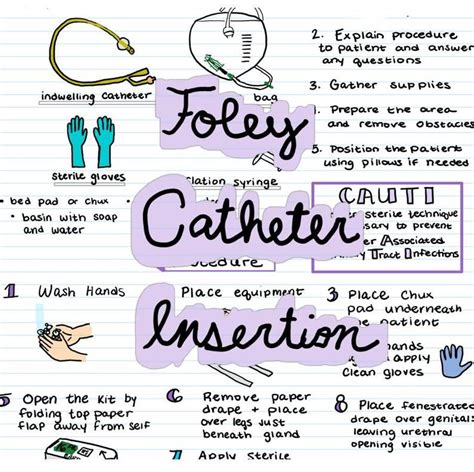 2. Explain procedure
to patient and answer
any questions
3. Gather supplies
indwelling catheter
bag
Foley
Prepare the area
and remove obstacles
5. Position the patient
using pillows if needed
sterile gloves
syringe
• bed pad or chux
• basin with soap
and water
CAUTI
sterile technique
to prevent
Associated
Tract Infections
Catheter
1 Wash Hands
Place equipment
3 Place Chux
pad underneath
patient
Insertion
hands
apply
clean gloves
5 Open the kit by
folding top paper
flap away from self
6 Remove paper
drape + place
over legs just
beneath gland
8 Place fenestrated
drape over genital
leaving urethral
opening visible
7 Apply sterile